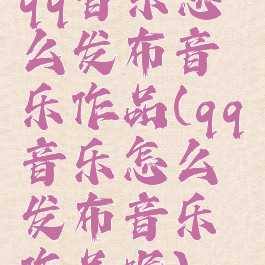 qq音乐怎
么发布音
乐作品(qq
音乐怎么
发布音乐
作品呢)